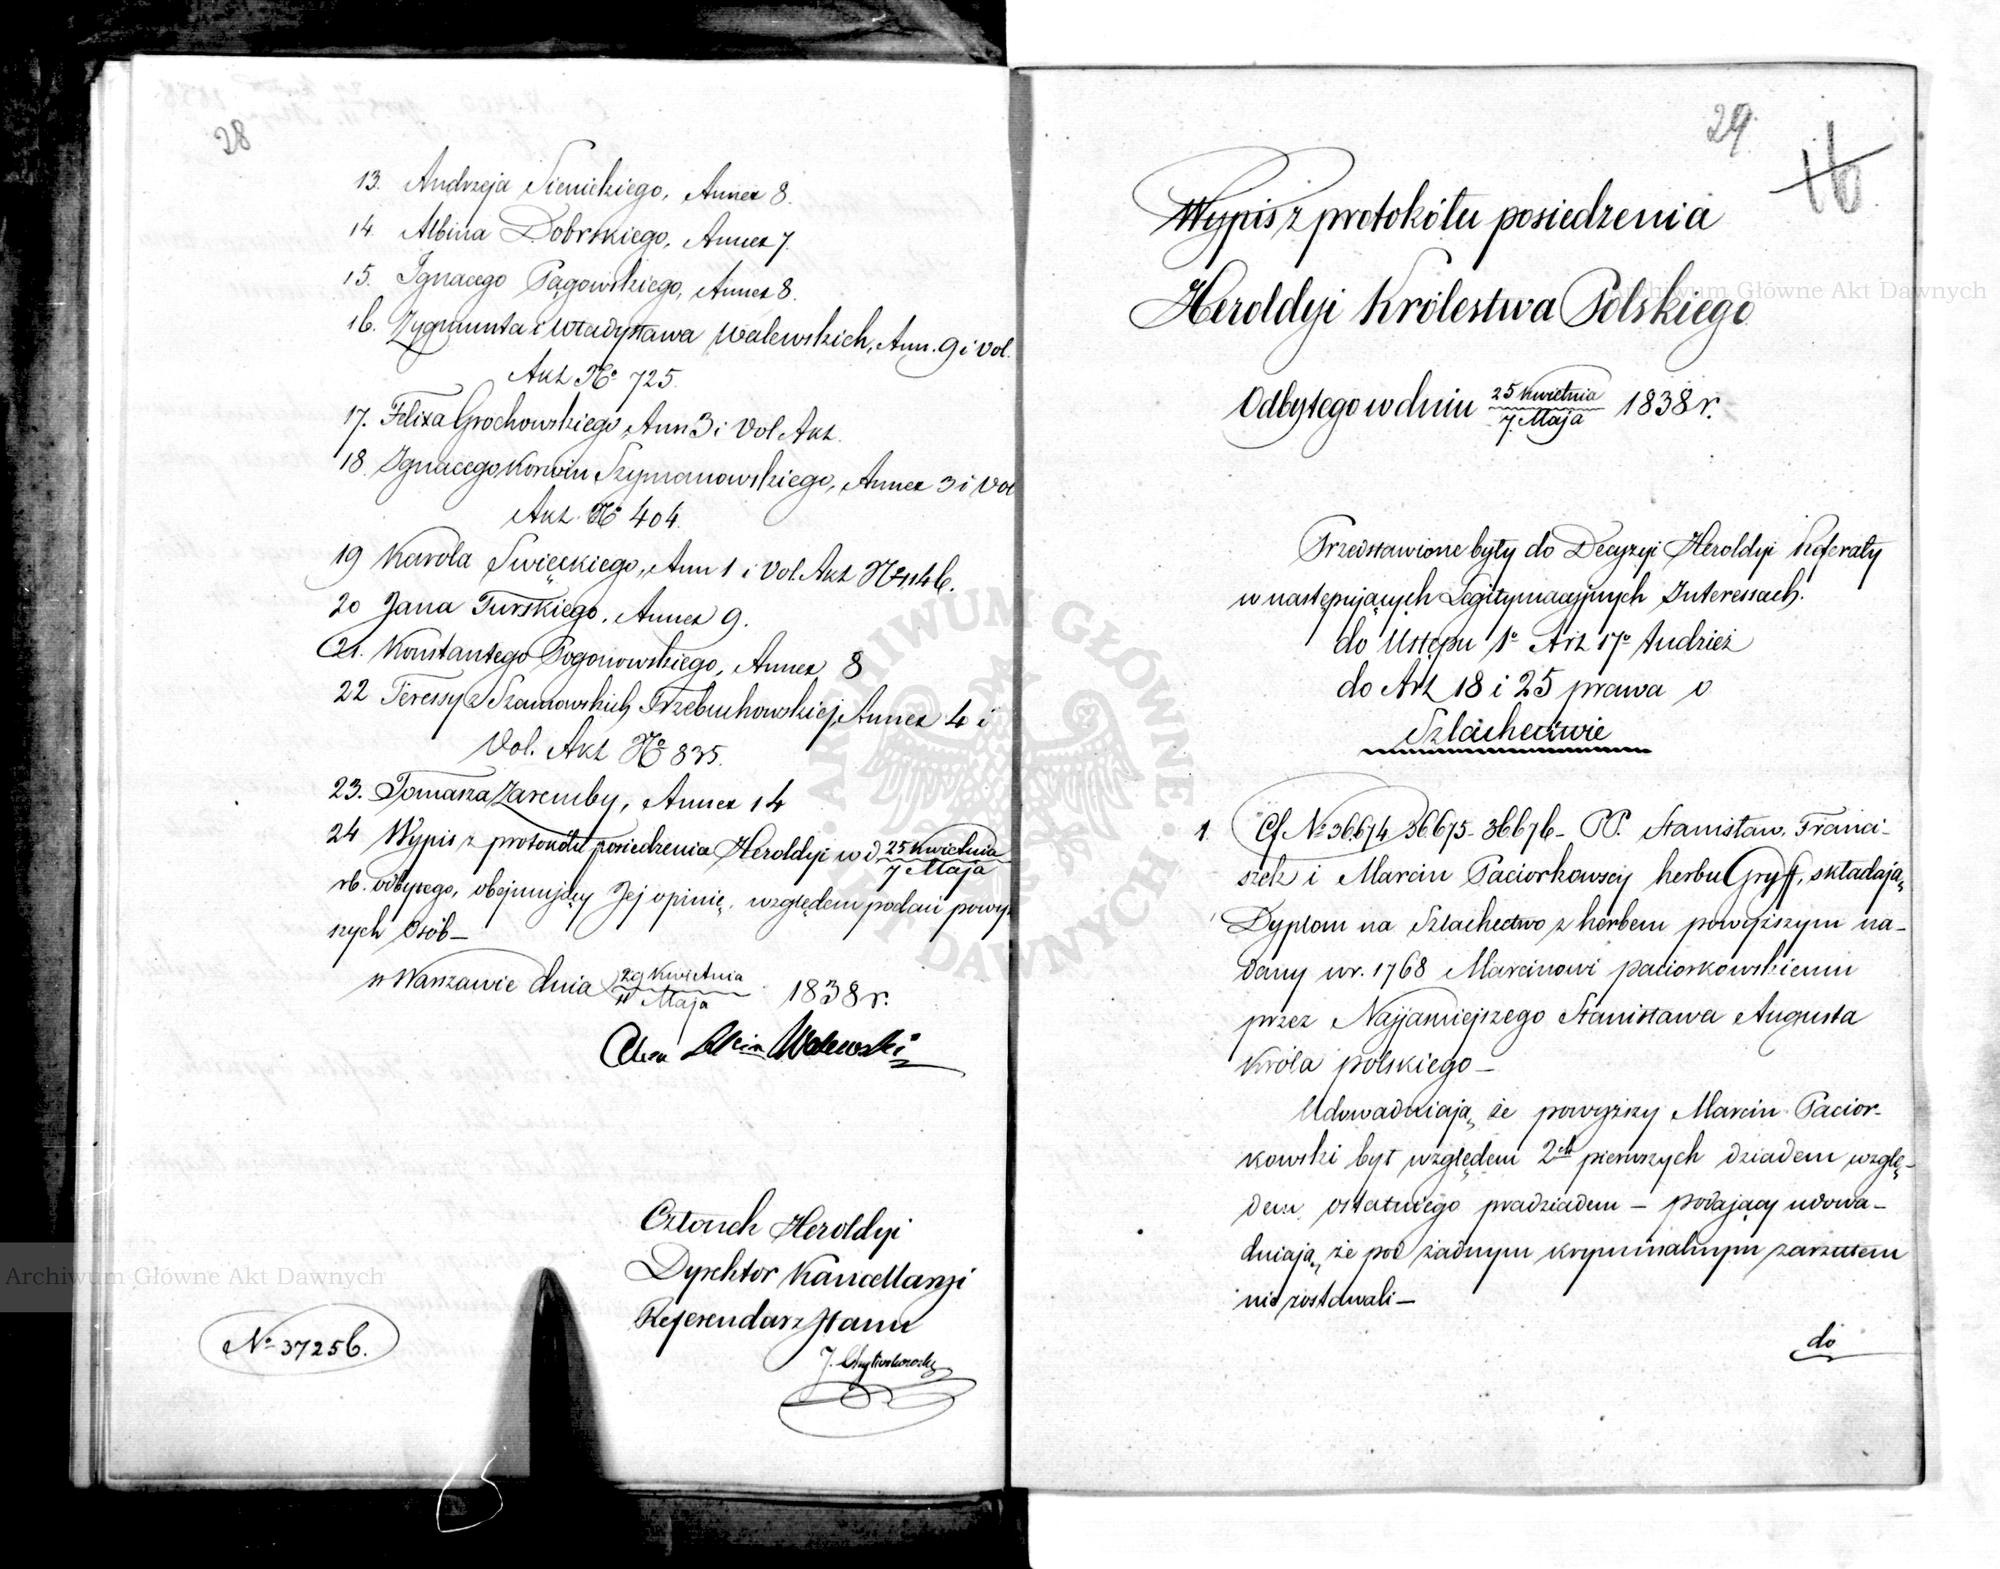 28
13. Andrzeja Sienickiego, Annex 8.
14 Albina Dobrskiego, Annex 7.
15. Ignacego Pągowskiego, Annex 8.
16. Zygmunta i Władysława Walewskich, Ann. 9 i Vol.
Akt No 725.
17. Felixa Grochowskiego, Ann 3 i Vol Akt.
18. Ignacego Korwin Szymanowskiego, Annex 3 i Vol
Akt. No 404.
19 Karola Święckiego, Ann 1 i Vol. Akt No
20 Jana Turskiego, Annex 9.
21. Konstantego Pogonowskiego, Annex 8
22 Teressy z Szamowskich Trzebuchowskiej, Annex 4 i
Vol. Akt No 835.
23. Tomasza Zaremby, Annex 14
24 Wypis z protokółu posiedzenia Heroldyi w d 25 Kwietnia
7 Maja
rb. odbytego, obejmujący Jej opinię, względem podań powyż
szych Osób —
w Warszawie dnia 29 Kwietnia 1838 r.
11 Maja
Walewski
Członek Heroldyi
Dyrektor Kancellaryi
Referendarz Stanu
No 37256.
29.
16
Wypis z protokółu posiedzenia
Heroldyi Królestwa Polskiego
Odbytego w dniu 25 Kwietnia 1838 r.
7 Maja
Przedstawione były do Decyzyi Heroldyi Referaty
w następujących Legitymacyjnych Interessach.
do Ustępu 1o Art 17o tudzież
do Art 18 i 25 prawa o
Szlachectwie
1. No 36674 36675 - 36676 - PP. Stanisław, Franci-
szek i Marcin Paciorkowscy herbu Gryff, składają
Dyplom na Szlachectwo z herbem powyższym na-
dany w r. 1768 Marcinowi Paciorkowskiemu
przez Najjaśniejszego Stanisława Augusta
Króla polskiego —
Udowadniają, że powyższy Marcin Pacior-
kowski był względem 2ch pierwszych dziadem wzglę-
dem ostatniego pradziadem — podający udowa-
dniają, że pod żadnym kryminalnym zarzutem
nie zostawali —
do
Archiwum Główne Akt Dawnych
Archiwum Główne Akt Dawnych
ARCHIWUM GŁÓWNE AKT DAWNYCH